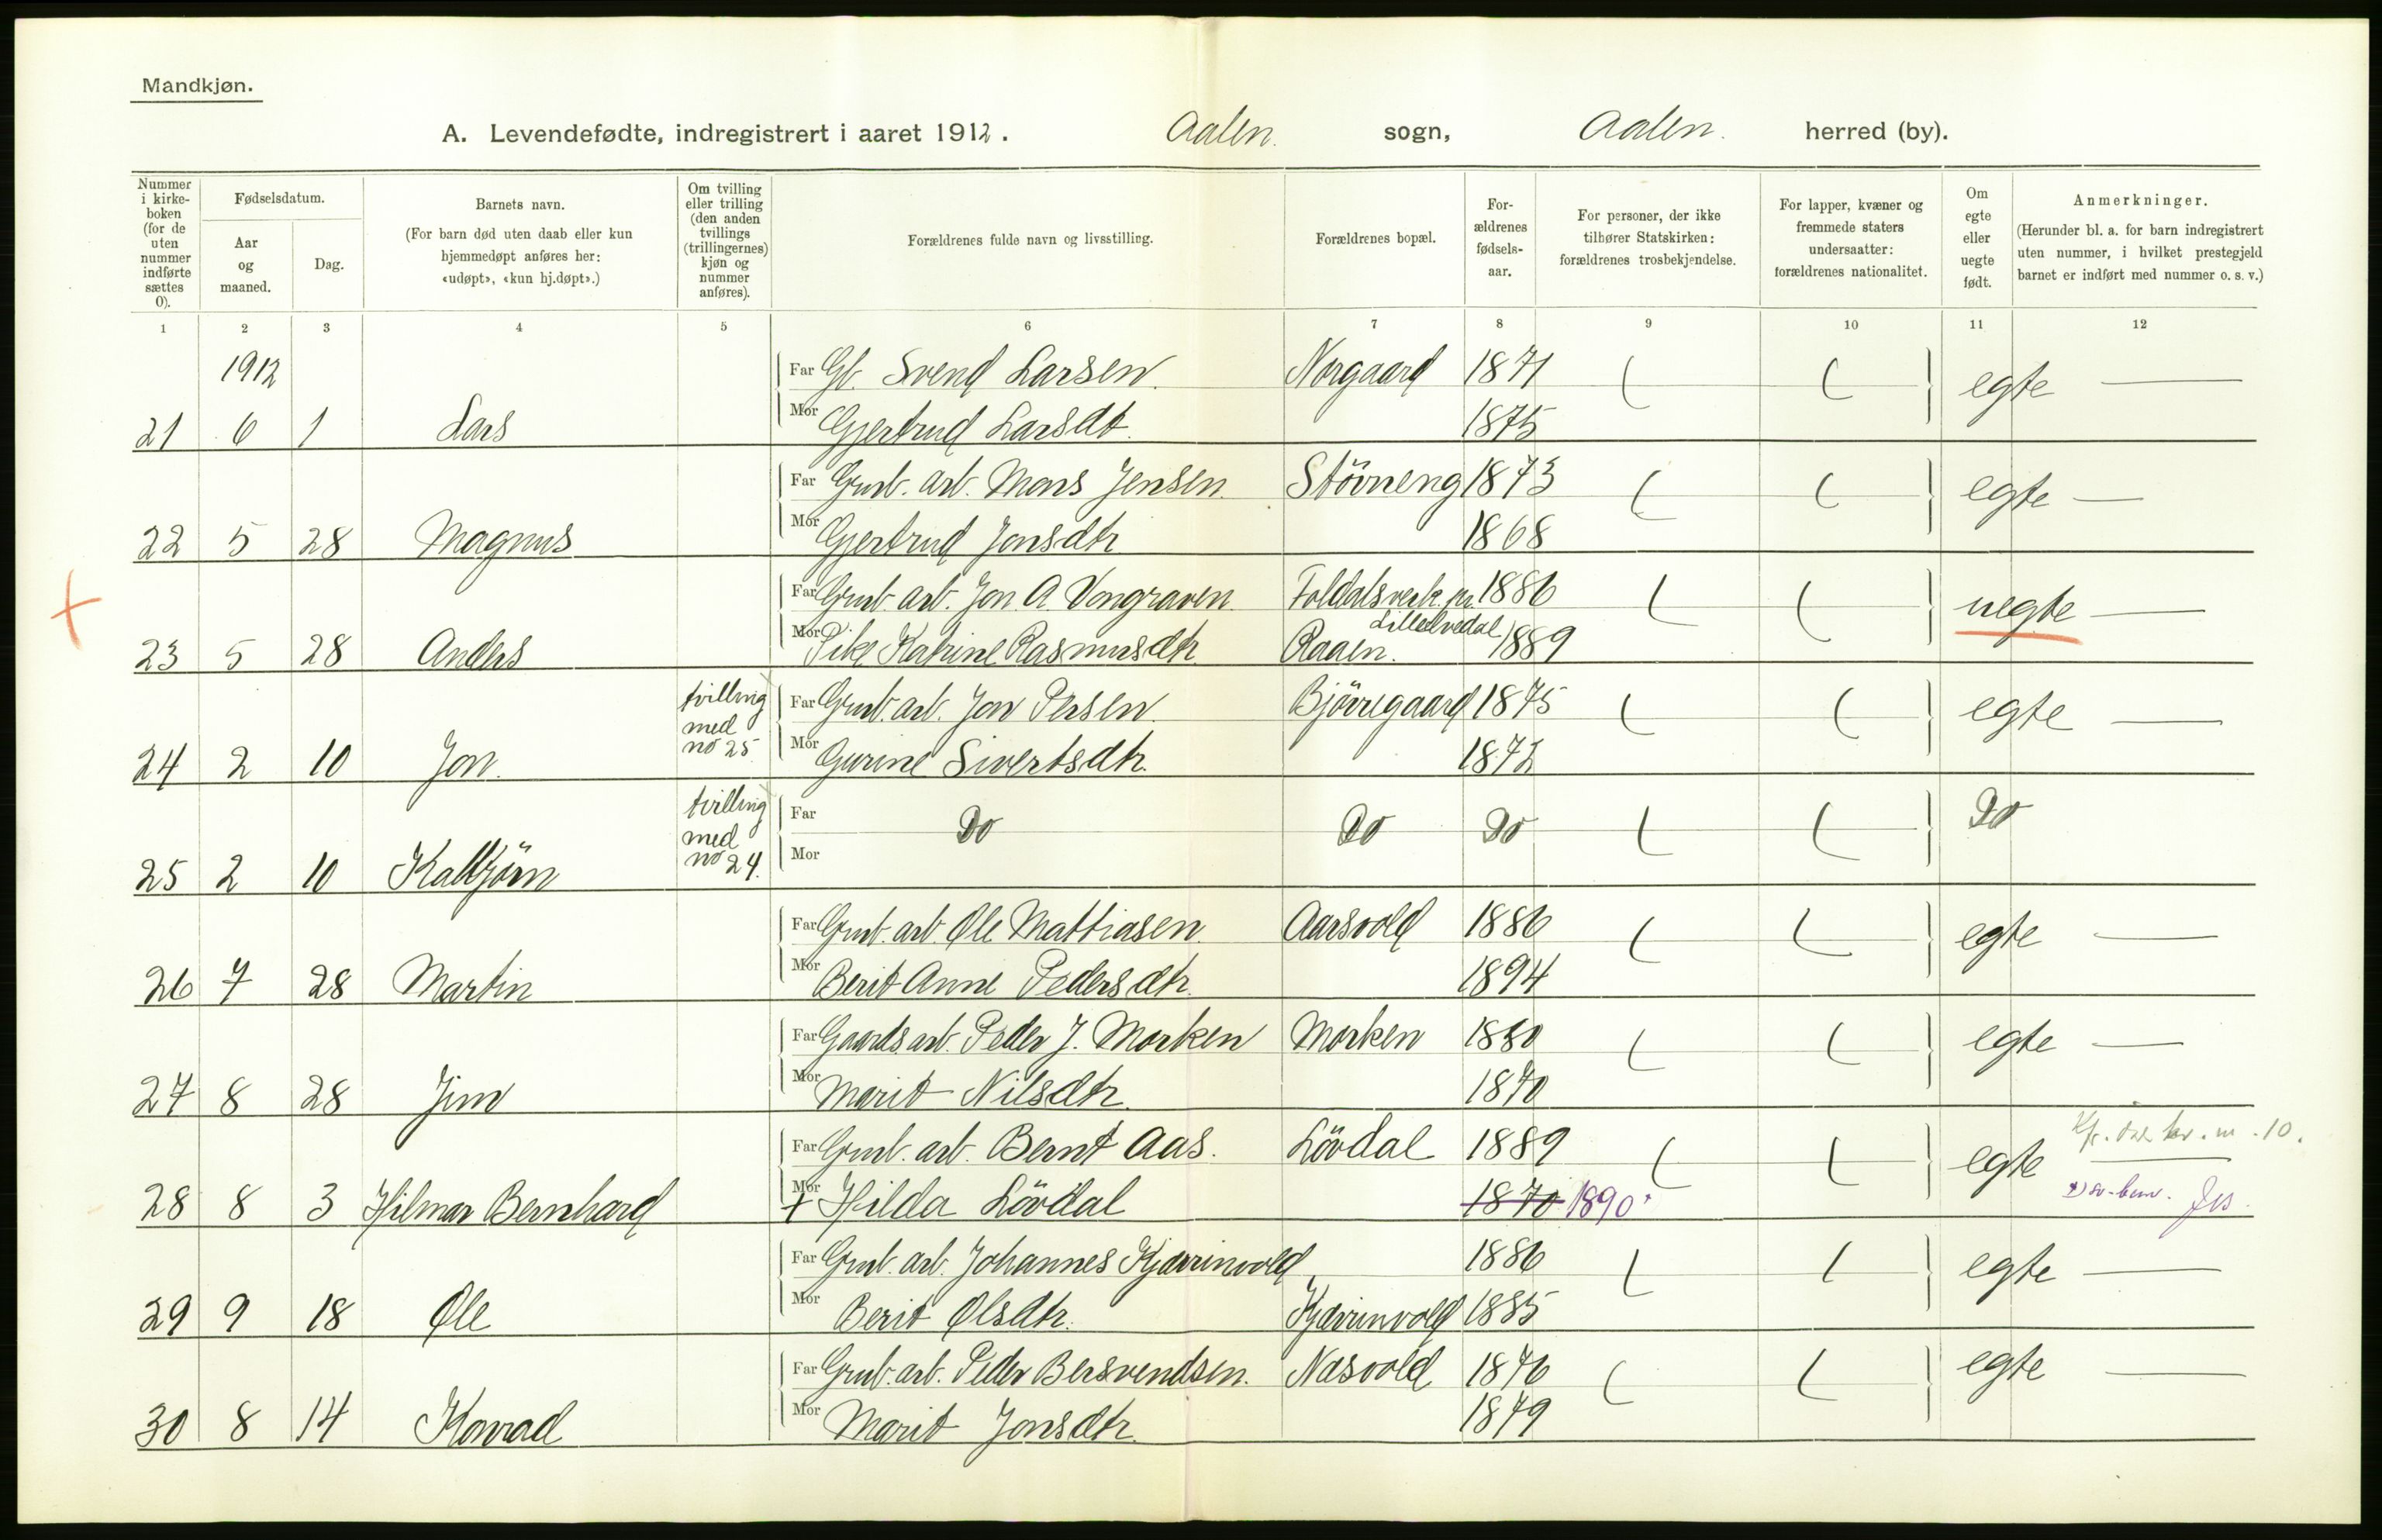 Mandkjøn.
A. Levendefødte, indregistrert i aaret 1912. Aalen. sogn, Aalen. herred (by).
Nummer i kirkeboken (for de uten nummer indførte sættes 0).
Fødselsdatum.
Aar og maaned.
Dag.
Barnets navn.
(For barn død uten daab eller kun hjemmedøpt anføres her: «udøpt», «kun hj.døpt».)
Om tvilling eller trilling (den anden tvillings (trillingernes) kjøn og nummer anføres).
Forældrenes fulde navn og livsstilling.
Forældrenes bopæl.
Forældrenes fødselsaar.
For personer, der ikke tilhører Statskirken: forældrenes trosbekjendelse.
For lapper, kvæner og fremmede staters undersaatter: forældrenes nationalitet.
Om egte eller uegte født.
Anmerkninger.
(Herunder bl. a. for barn indregistrert uten nummer, i hvilket prestegjeld barnet er indført med nummer o. s. v.)
1 2 3 4 5 6 7 8 9 10 11 12
1912
Far Gb. Svend Larsen. Norgaard 1871 egte —
21 6 1 Lars Mor Gjertrud Larsdt. 1875
Far Grub. arb. Mons Jensen. Stövneng 1873 egte —
22 5 28 Magnus Mor Gjertrud Jonsdtr 1868
Far Grub. arb. Jon A. Vongraven. Foldalsverk pr. Lilleelvedal 1886 uegte —
23 5 28 Anders Mor Pike Katrine Rasmusdtr. Raaen. 1889
tvilling med no 25
Far Grub. arb. Jon Persen. Björregaard 1875 egte —
24 2 10 Jon. Mor Gurine Sivertsdtr. 1872
tvilling med no 24.
Far Do Do Do Do
25 2 10 Kalbjörn Mor
Far Grub. arb. Ole Mattiasen. Aarsvold 1886 egte —
26 7 28 Martin Mor Berit Anne Pedersdtr. 1894
Far Gaardsarb. Peder J. Morken Morken 1880 egte —
27 8 28 Jim Mor Marit Nilsdtr. 1870
Far Grub. arb. Bernt Aas. Lövdal 1889 egte 10.
28 8 3 Hilmar Bernhard Mor + Hilda Lövdal 1870 1890
Far Grub. arb. Johannes Kjørrinvold, 1886 egte —
29 9 18 Ole Mor Berit Olsdtr. Kjørrinvold 1885
Far Grub. arb. Peder Bersvendsen. Næsvold 1876 egte —
30 8 14 Konrad Mor Marit Jonsdtr. 1879